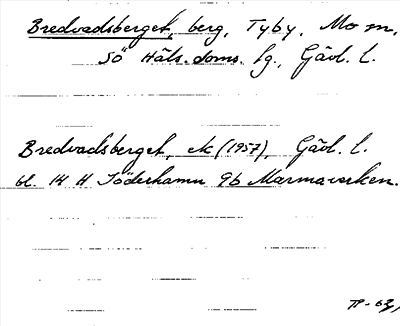 Bredvadsberget, berg, Tyby, Mo sn,
Sö Häls. doms. lg., Gävl. l.
Bredvadsberget, ek (1957), Gävl. l.
bl. 14 H Söderhamn 9b Marmaverken.